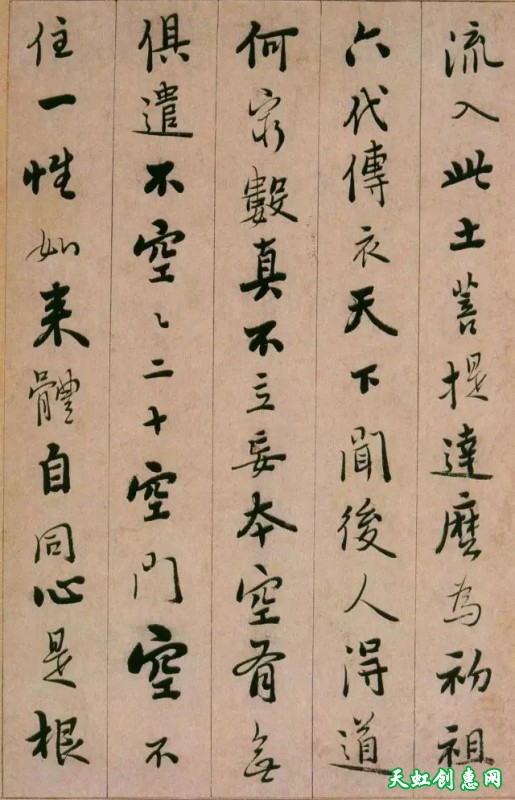 流入此土菩提達磨為初祖
六代傳衣天下聞後人得道
何窮數真不立妄本空有無
俱遣不空〻二十空門空不
住一性如来體自同心是根
天虹创惠网